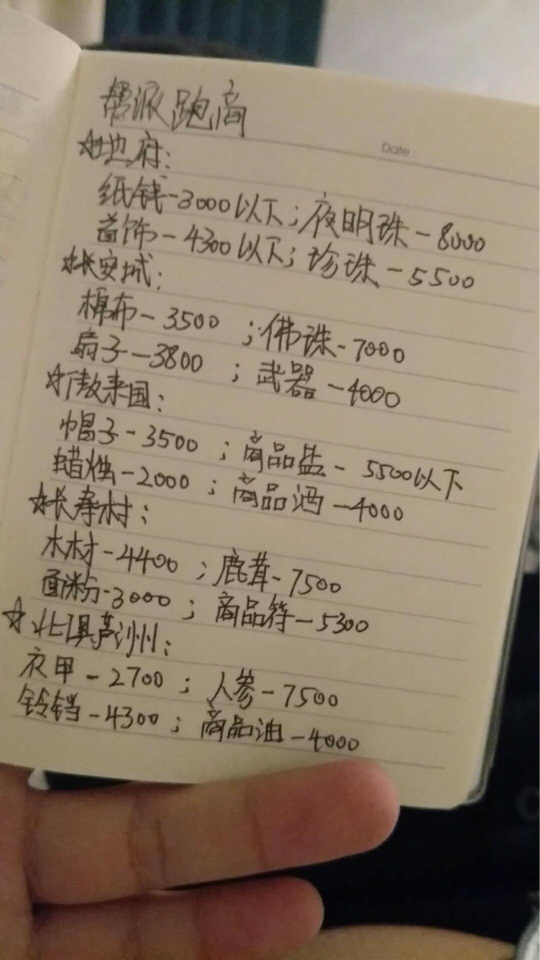 帮派跑商
Date:
☆地府:
纸钱-3000以下;夜明珠-8000
首饰-4300以下;珍珠-5500
☆长安城:
棉布-3500 ;佛珠-7000
扇子-3800 ;武器-4000
☆傲来国:
帽子-3500 ;商品盐-5500以下
蜡烛-2000 ;商品酒-4000
☆长寿村:
木材-4400 ;鹿茸-7500
面粉-3000 ;商品符-5300
☆北俱芦洲州:
衣甲-2700 ;人参-7500
铃铛-4300 ;商品油-4000